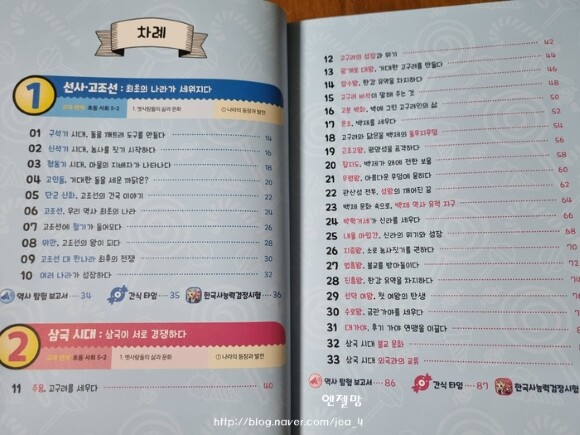 차례
1 선사·고조선 : 최초의 나라가 세워지다
교과 연계 초등 사회 5-2 1. 옛사람들의 삶과 문화 ① 나라의 등장과 발전
01 구석기 시대, 돌을 깨뜨려 도구를 만들다 14
02 신석기 시대, 농사를 짓기 시작하다 16
03 청동기 시대, 마을의 지배자가 나타나다 18
04 고인돌, 거대한 돌을 세운 까닭은? 20
05 단군 신화, 고조선의 건국 이야기 22
06 고조선, 우리 역사 최초의 나라 24
07 고조선에 철기가 들어오다 26
08 위만, 고조선의 왕이 되다 28
09 고조선 대 한나라 최후의 전쟁 30
10 여러 나라가 성장하다 32
역사 탐험 보고서 34 간식 타임 35 한국사능력검정시험 36
2 삼국 시대 : 삼국이 서로 경쟁하다
교과 연계 초등 사회 5-2 1. 옛사람들의 삶과 문화 ① 나라의 등장과 발전
11 주몽, 고구려를 세우다 40
12 고구려의 성장과 위기 42
13 광개토 대왕, 거대한 고구려를 만들다 44
14 장수왕, 한강 유역을 차지하다 46
15 고구려 비석이 말해 주는 것 48
16 고분 벽화, 벽에 그린 고구려인의 삶 50
17 온조, 백제를 세우다 52
18 고구려와 닮은꼴 백제의 돌무지무덤 54
19 근초고왕, 평양성을 공격하다 56
20 칠지도, 백제가 왜에 전한 보물 58
21 무령왕, 아름다운 무덤에 묻히다 60
22 관산성 전투, 성왕의 깨어진 꿈 62
23 백제 문화 속으로, 백제 역사 유적 지구 64
24 박혁거세가 신라를 세우다 66
25 내물 마립간, 신라의 위기와 성장 68
26 지증왕, 소로 농사짓기를 권하다 70
27 법흥왕, 불교를 받아들이다 72
28 진흥왕, 한강 유역을 차지하다 74
29 선덕 여왕, 첫 여왕의 탄생 76
30 수로왕, 금관가야를 세우다 78
31 대가야, 후기 가야 연맹을 이끌다 80
32 삼국 시대 불교 문화
33 삼국 시대 외국과의 교류
역사 탐험 보고서 86 간식 타임 87 한국사능력검정시험
앤젤맘
http://blog.naver.com/jea_4